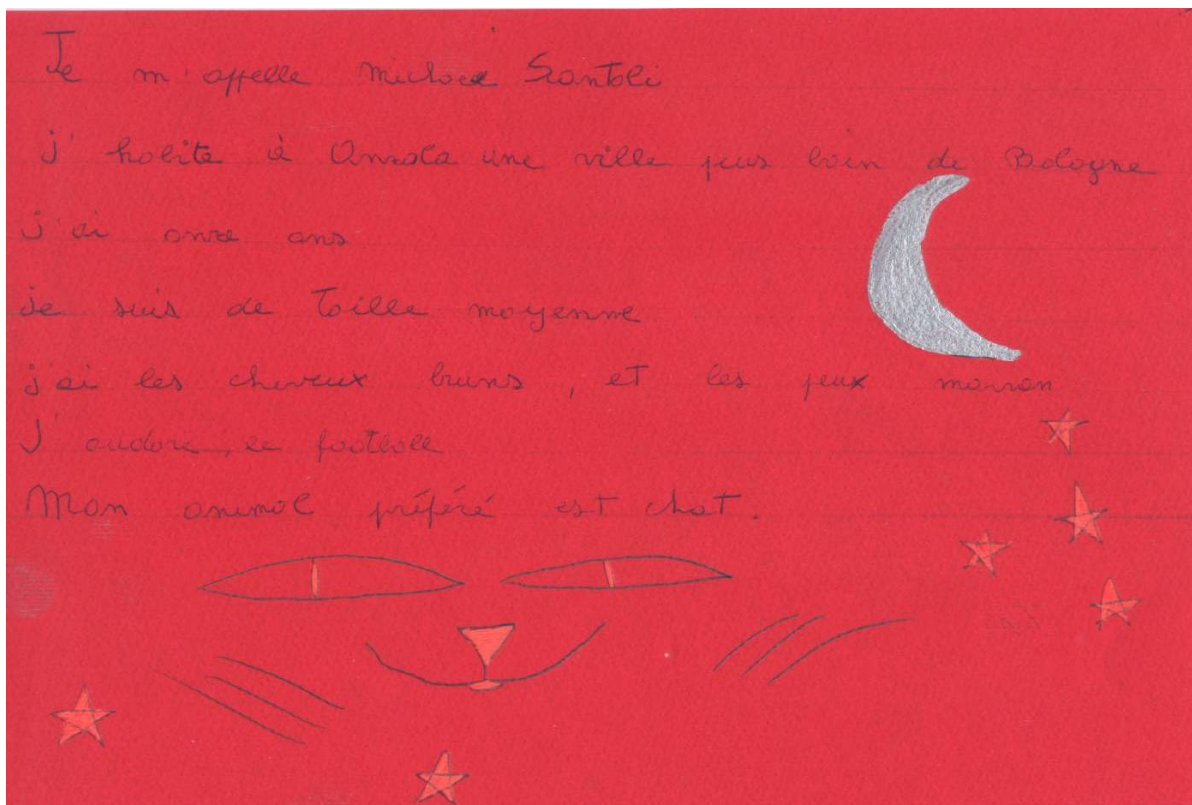 Je m'appelle Michael Santoli
j'habite à Anzola une ville peus loin de Bologne
j'ai onze ans
je suis de taille moyenne
j'ai les cheveux bruns, et les jeux marron
J'audore, le football
Mon animal préféré est chat.